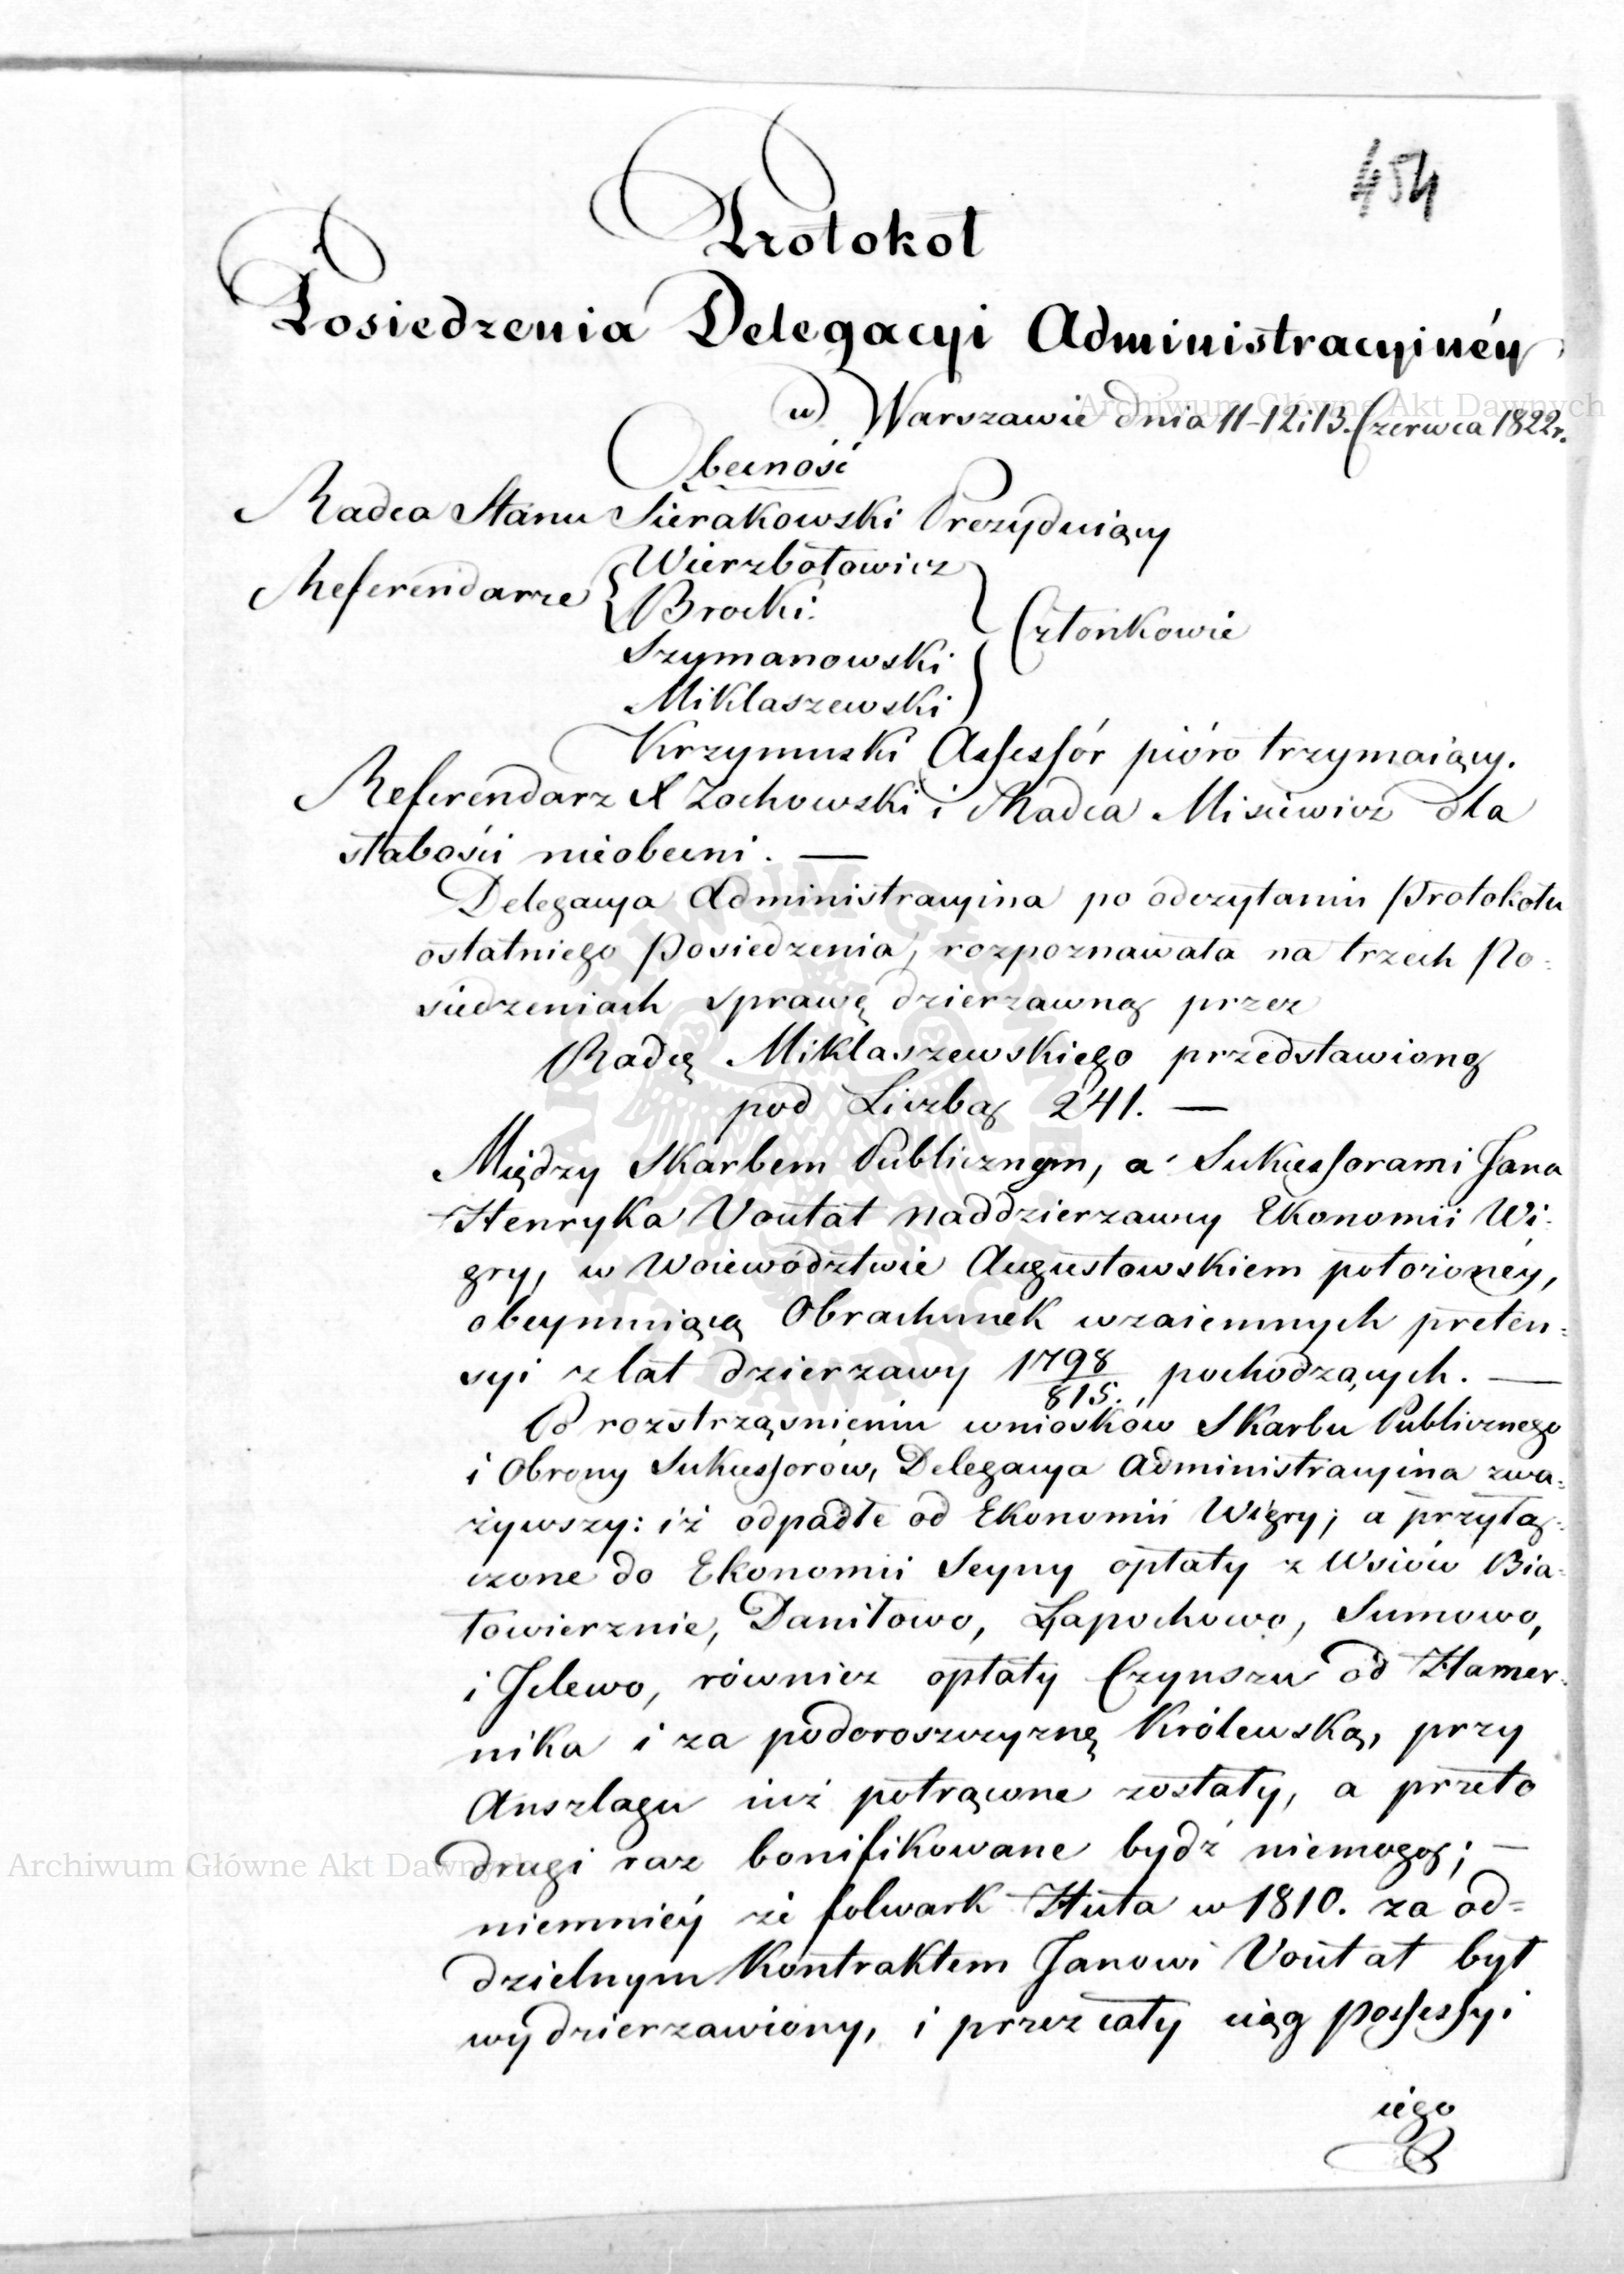 454
Protokół
Posiedzenia Delegacyi Administracyinéy
w Warszawie dnia 11-12 i 13. Czerwca 1822 r.
Obecność
Radca Stanu Sierakowski Prezyduiący
Referendarze Wierzbołowicz
Brocki.
Szymanowski
Członkowie
Miklaszewski
Krzymuski Assessór pióro trzymaiący.
Referendarz X Zochowski i Radca Misiewicz dla
słabości nieobecni. —
Delegacya Administracyina po odczytaniu Protokołu
ostatniego Posiedzenia, rozpoznawała na trzech Po=
siedzeniach sprawę dzierzawną przez
Radcę Miklaszewskiego przedstawioną
pod Liczbą 241. —
Między Skarbem Publicznym, a Sukcessorami Jana
Henryka Voutat Naddzierzawcy Ekonomii Wi=
gry, w Woiewództwie Augustowskiem położonéy,
obeymuiącą Obrachunek wzaiemnych preten=
syi z lat dzierzawy 1798/815. pochodzących. —
Po rozstrząśnieniu wniosków Skarbu Publicznego
i Obrony Sukcessorów, Delegacya Administracyina zwa=
żywszy: iż odpadłe od Ekonomii Wigry; a przyłą=
czone do Ekonomii Seyny opłaty z Wsiów Bia=
łowierznie, Daniłowo, Łapochowo, Sumowo,
i Jelewo, równiez opłaty Czynszu od Hamer=
nika i za podoroszczyznę Królewską, przy
Anszlagu iuż potrącone zostały, a przeto
drugi raz bonifikowane bydź niemogą; —
niemniéy że folwark Huta w 1810. za od=
dzielnym Kontraktem Janowi Voutat był
wydzierzawiony, i przez cały ciąg possessyi
iego
Archiwum Główne Akt Dawnych
Archiwum Główne Akt Dawnych
ARCHIWUM GŁÓWNE AKT DAWNYCH